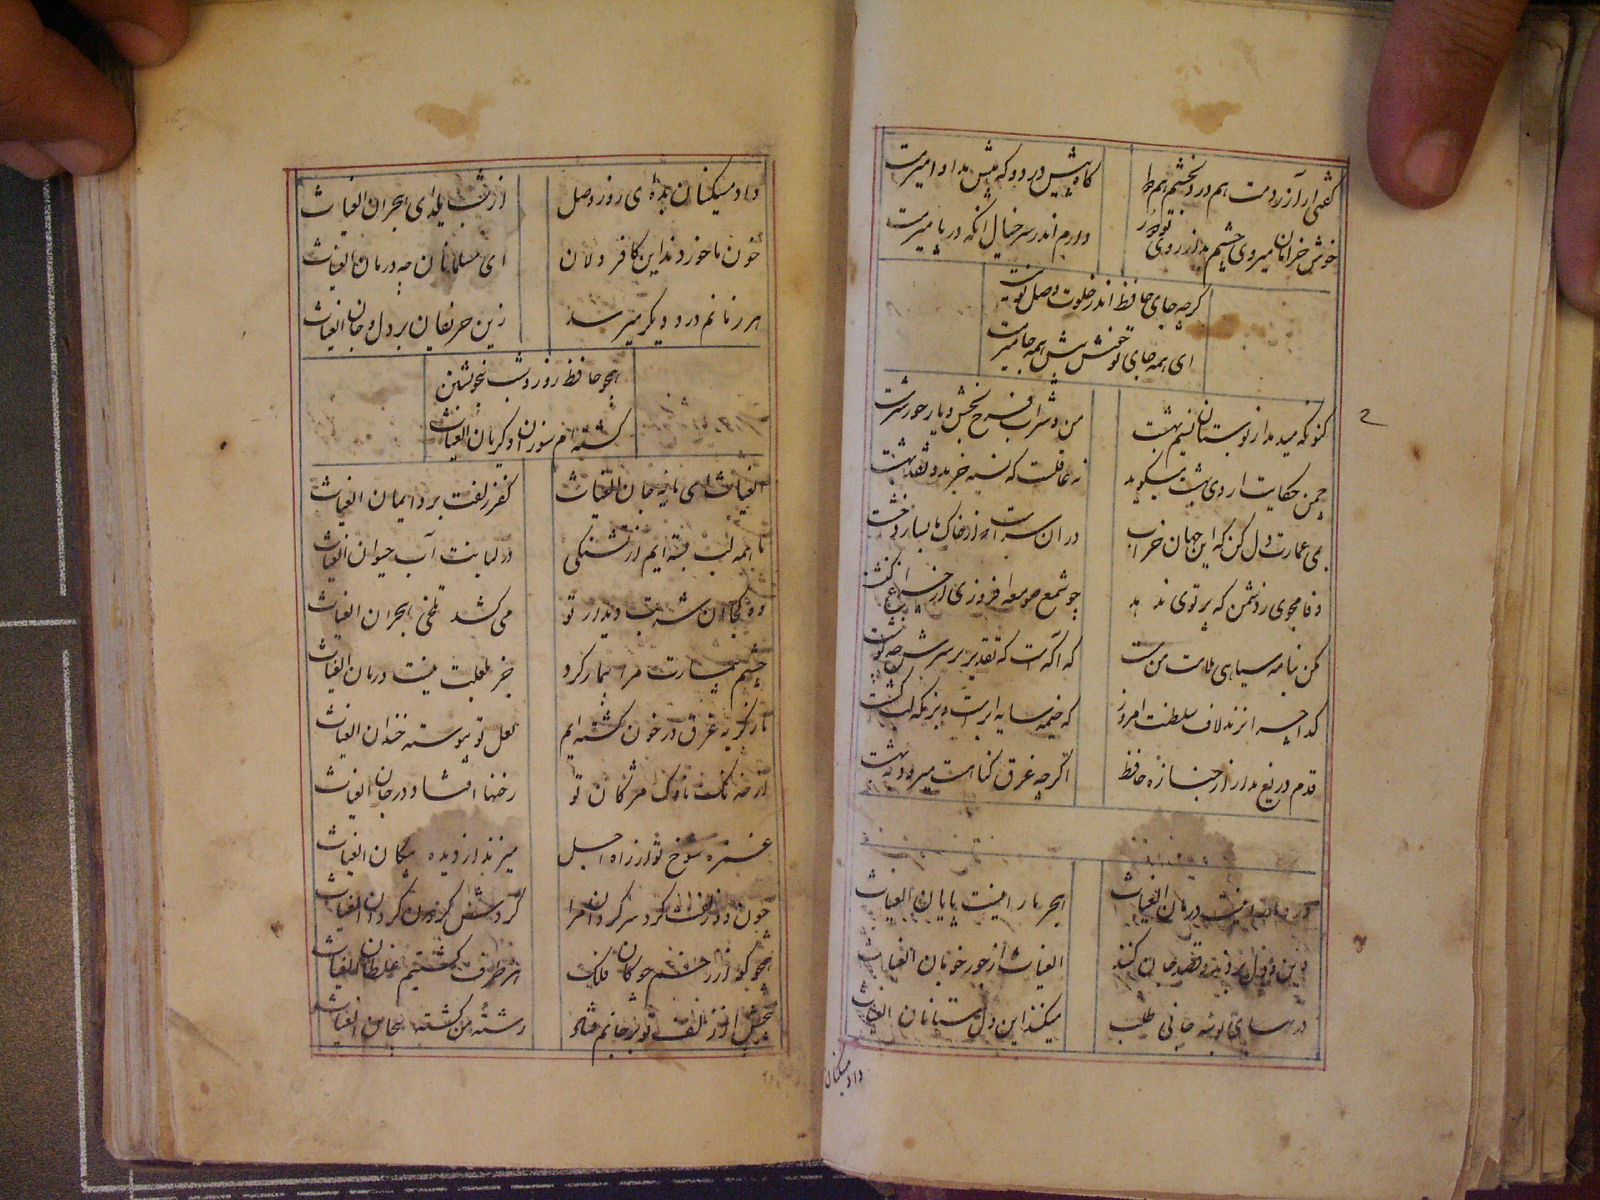 گفتی ار آزردمت هم در دلخشم هم‌ما
کاه پیش در دو که پیش ما داو امیرمت
خوش خرامان میروی چشم بد از روی تو دور
دارم اندر سر خیال آنکه در پا میرمت
گرچه جای حافظ اندر خلوت وصل تو نیست
ای همه جای تو خوش پیش همه جا میرمت
کنونکه میدمد از بوستان نسیم بهشت
من و شراب فرح بخش و یار حور سرشت
چمن حکایت اردی بهشت میگوید
نه عاقلست که نسیه خرید و نقد بهشت
بمی عمارت دل کن که این جهان خراب
در ان سر است که از خاک ما بسازد خشت
وفا مجوی ز دشمن که پرتوی ندهد
چو شمع صومعه افروزی از چراغ کنشت
مکن بنامه سیاهی ملامت من مست
که آگهست که تقدیر بر سرش چه نوشت
گدا چرا نزند لاف سلطنت امروز
که خیمه سایه ابرست و بزمگه لب کشت
قدم دریغ مدار از جنازه حافظ
اگرچه غرق گناهست میرود به بهشت
درد ما را نیست درمان الغیاث
هجر ما را نیست پایان الغیاث
دین و دل بردند و قصد جان کنند
الغیاث از جور خوبان الغیاث
در بهای بوسه جانی طلب
میکنند این دلستانان الغیاث
داد مسکینان
داد مسکینان بده ای روز وصل
از شب یلدای هجران الغیاث
خون ما خوردند این کافر دلان
ای مسلمانان چه درمان الغیاث
هر زمانم درد دیگر میرسد
زین حریفان بر دل و جان الغیاث
همچو حافظ روز و شب بیخویشتن
گشته ام سوزان و گریان الغیاث
الغیاث ای مایه جان الغیاث
کفر زلفت برد ایمان الغیاث
ما همه لب بسته ایم از تشنگی
در لبانت آب حیوان الغیاث
وه کجا آن شربت دیدار تو
می کشد تلخی هجران الغیاث
چشم بیمارت مرا بیمار کرد
جز لبت نیست درمان الغیاث
ما ز گریه غرق در خون گشته ایم
لعل تو پیوسته خندان الغیاث
از خدنگ ناوک مژگان تو
رخنها افتاد در جان الغیاث
غمزه شوخ تو از راه اجل
میزند از دیده پیکان الغیاث
چون دو زلفت کرد سرگردان مرا
گردش گردون گردان الغیاث
همچو گو از زخم چوگان فلک
هر طرف گشتیم غلطان الغیاث
از زلف تو بر جانم
رشته من گشته الغیاث